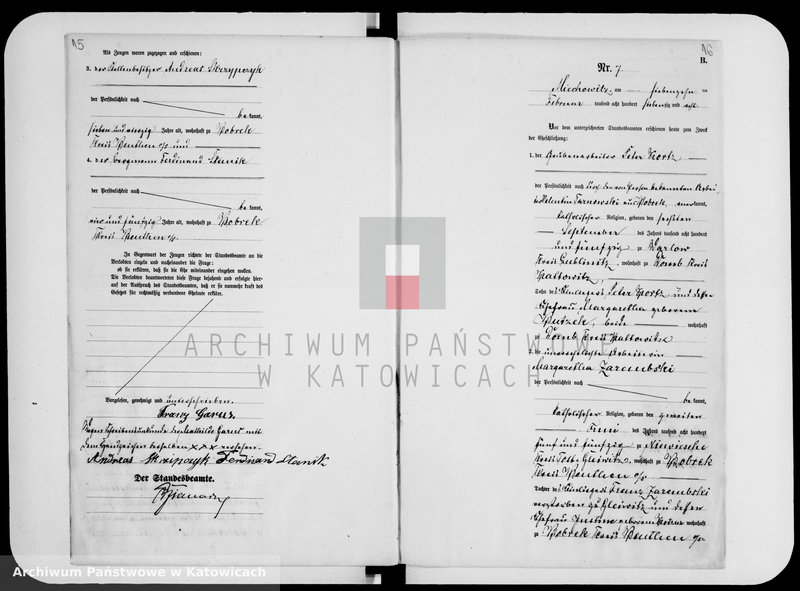 15
Als Zeugen waren zugezogen und erschienen:
3. der Stellenbesitzer Andreas Skrzypczyk
der Persönlichkeit nach
be kannt,
sieben und vierzig Jahre alt, wohnhaft zu Bobrek
Kreis Beuthen o/s und
4. der Bergmann Ferdinand Slanik
der Persönlichkeit nach
be kannt,
vier und fünfzig Jahre alt, wohnhaft zu Bobrek
Kreis Beuthen o/s.
In Gegenwart der Zeugen richtete der Standesbeamte an die
Verlobten einzeln und nacheinander die Frage:
ob sie erklären, daß sie die Ehe miteinander eingehen wollen.
Die Verlobten beantworteten diese Frage bejahend und erfolgte hier-
auf der Ausspruch des Standesbeamten, daß er sie nunmehr kraft des
Gesetzes für rechtmäßig verbundene Eheleute erkläre.
Vorgelesen, genehmigt und unterschrieben.
Franz Garus.
mit
dem Handzeichen derselben xxx versehen.
Andreas Skripczyk Ferdinand Slanik
Der Standesbeamte.
16
B.
Nr. 7
Miechowitz, am siebenzehn ten
Februar tausend acht hundert siebenzig und acht.
Vor dem unterzeichneten Standesbeamten erschienen heute zum Zweck
der Eheschließung:
1. der Grubenarbeiter Peter Kortz
der Persönlichkeit nach durch den von Person bekannten Arbei-
ter Valentin Tarnowski aus Bobrek, anerkannt,
katholischer Religion, geboren den sechsten
September des Jahres tausend acht hundert
und fünfzig zu
Kreis Lublinitz, wohnhaft zu Domb Kreis
Kattowitz,
Sohn des Peter Kortz und dessen
Ehefrau Margaretha geborene
beide wohnhaft
zu Domb Kreis Kattowitz
2. die unverehelichte Arbeiterin
Margaretha Zarembski
der Persönlichkeit nach
be kannt,
katholischer Religion, geboren den zweiten
Juni des Jahres tausend acht hundert
fünf und fünfzig zu
Kreis Tost-Gleiwitz, wohnhaft zu Bobrek
Kreis Beuthen o/s
Tochter des Franz Zarembski
verstorben zu Gleiwitz und dessen
Ehefrau geborene wohnhaft
zu Bobrek Kreis Beuthen o/s
ARCHIWUM PAŃSTWOWE
W KATOWICACH
Archiwum Państwowe w Katowicach